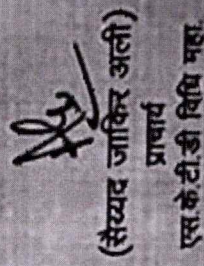 (सैय्यद जाकिर अली)
प्राचार्य
एस.के.टी.डी विधि महा.